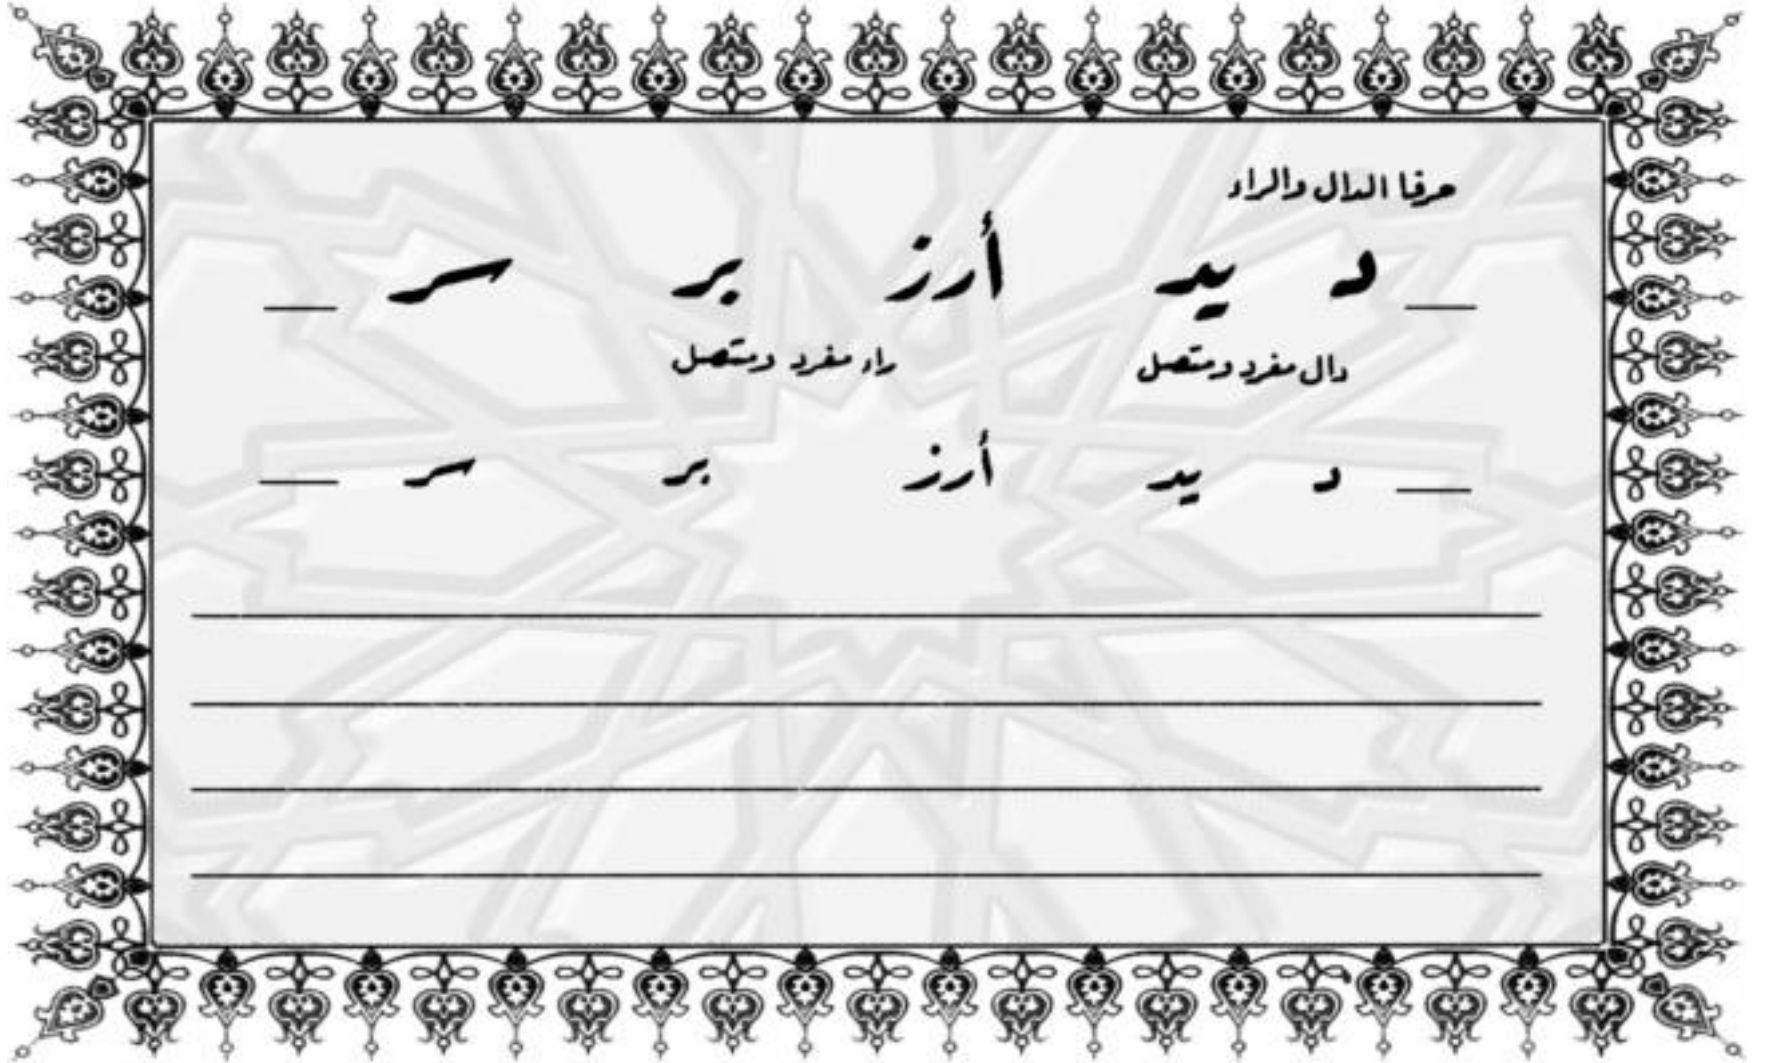 حرفا الدال والراء
د يد أرز بر سر
دال مفرد ومتصل راء مفرد ومتصل
د يد أرز بر سر